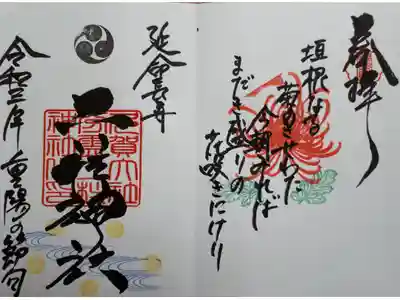 奉拝
垣根なる
菊のきせわた
今朝みれば
まだき盛りの
花咲きにけり
延命長寿
二柱神社
令和三年 重陽の節句